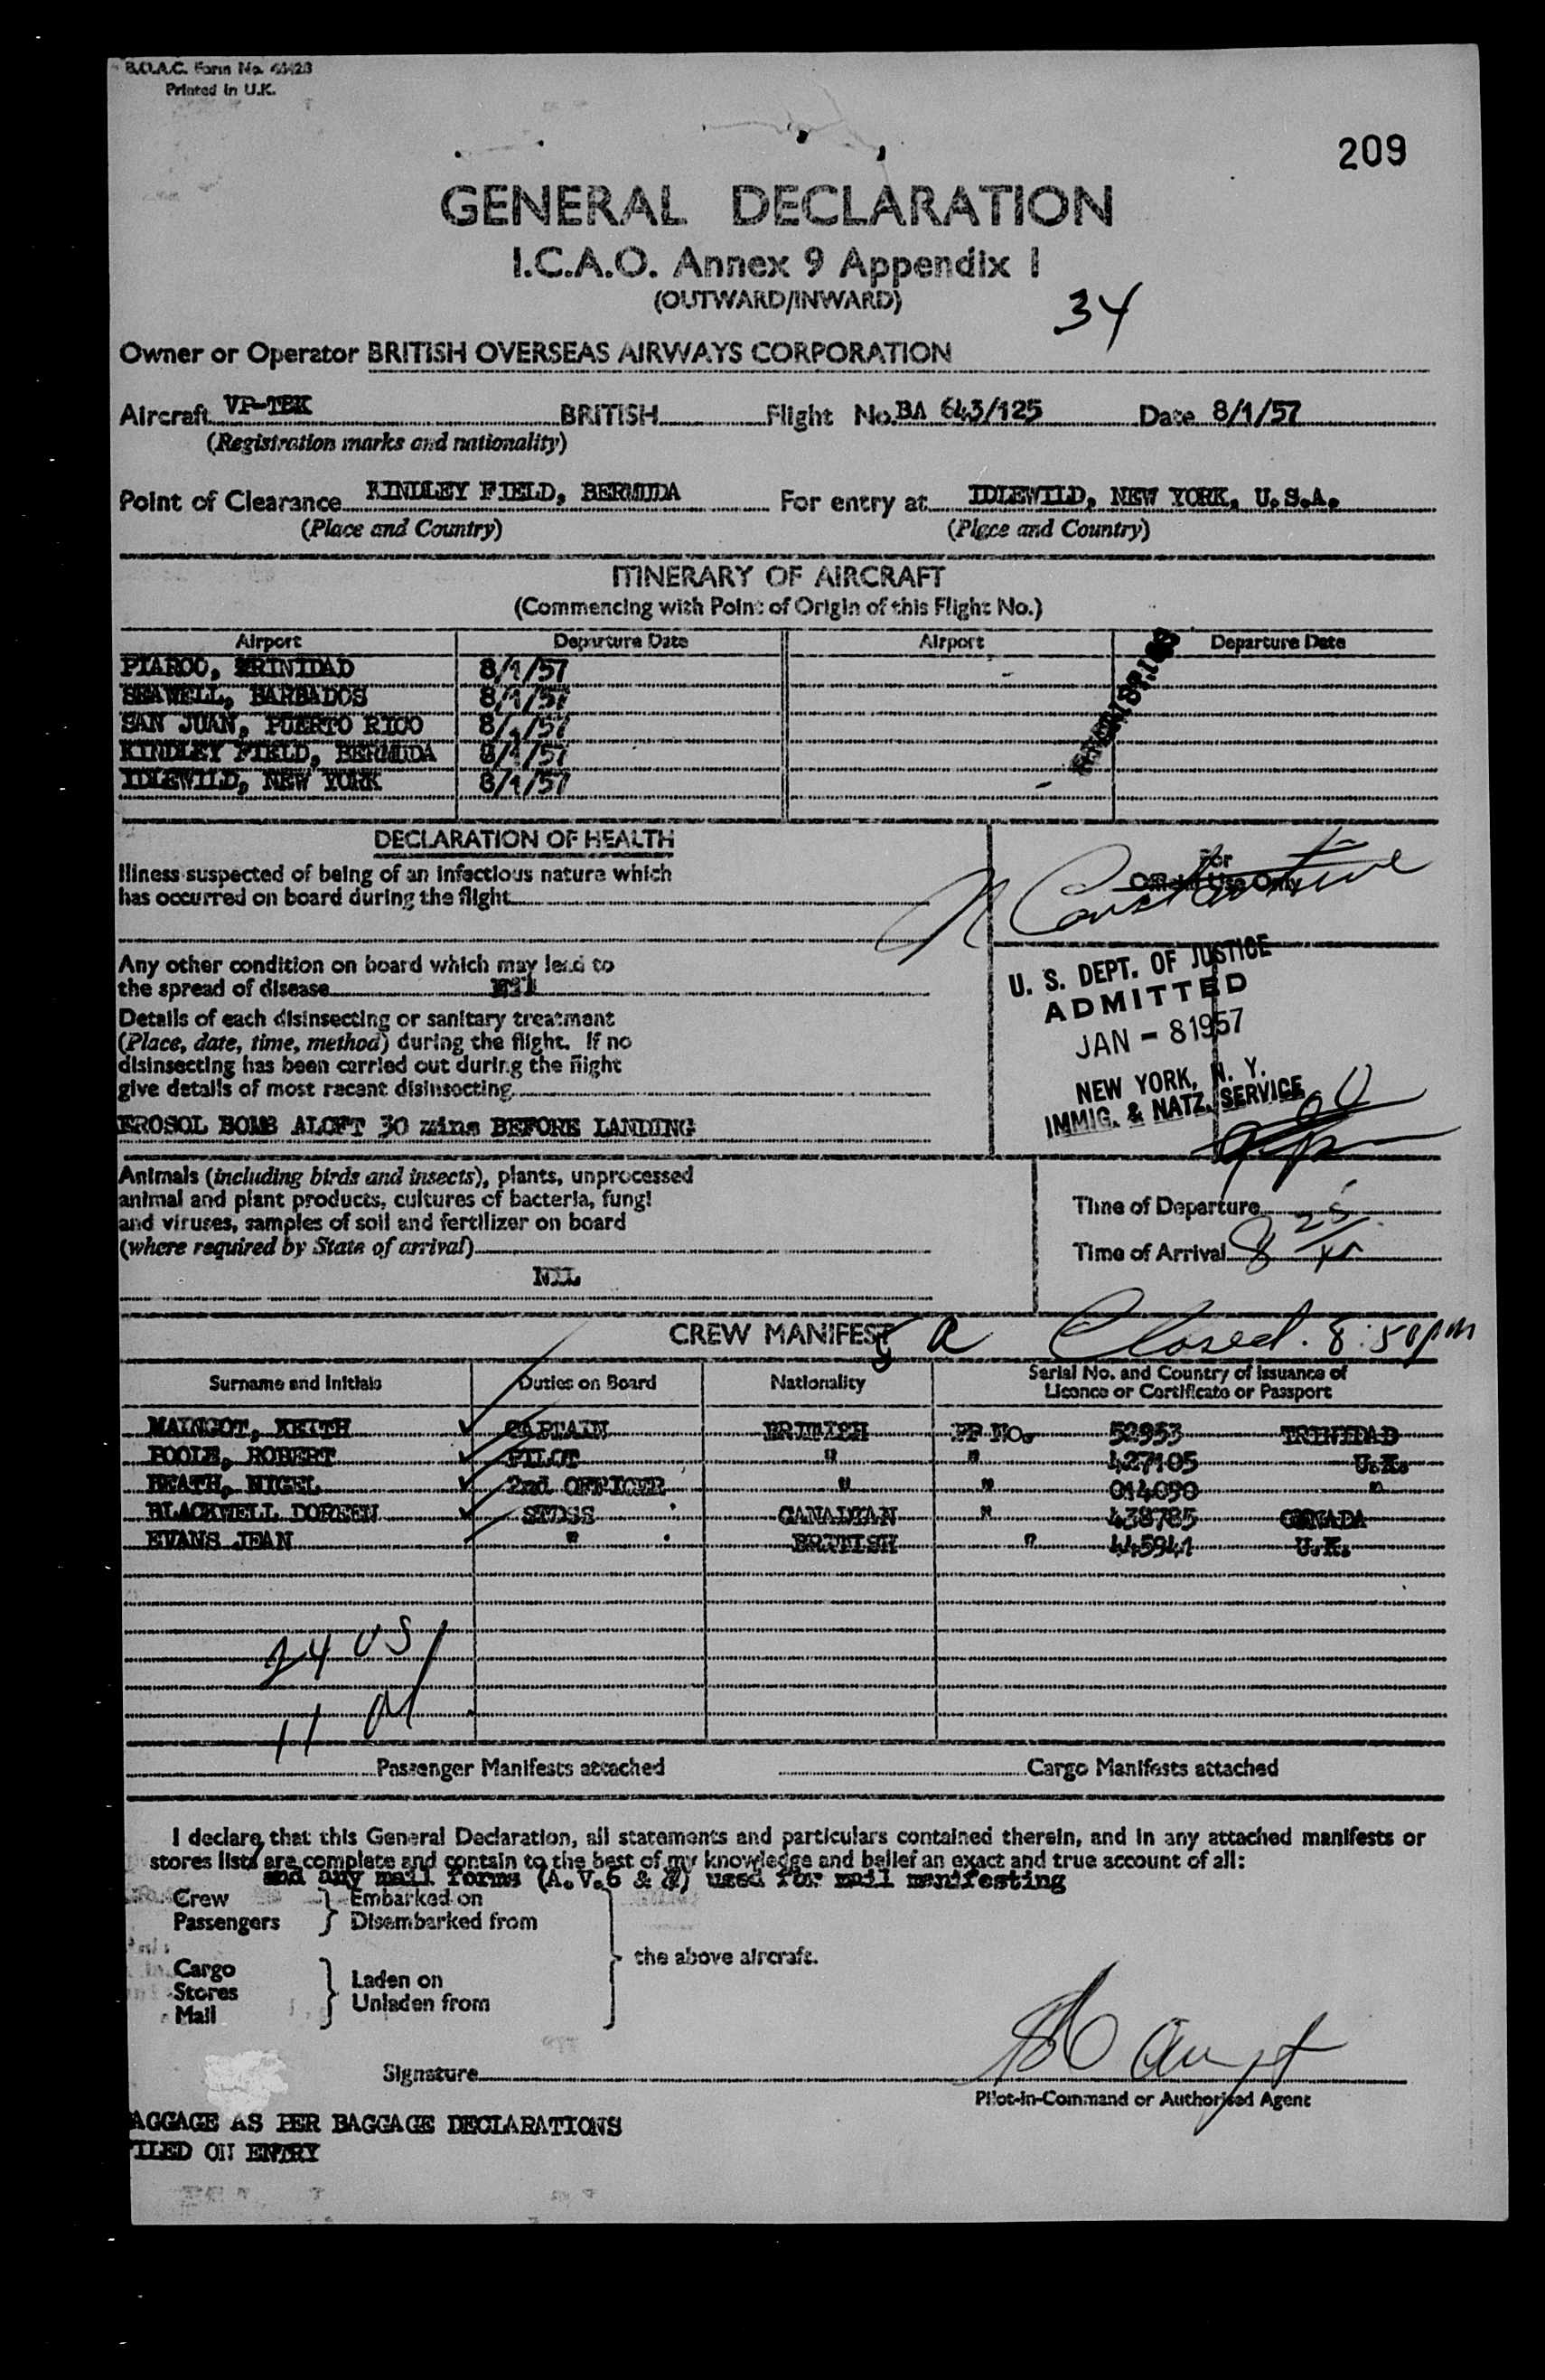 B.O.A.C. Form No.
Printed in U.K.
209
GENERAL DECLARATION
I.C.A.O. Annex 9 Appendix I
(OUTWARD/INWARD)
34
Owner or Operator BRITISH OVERSEAS AIRWAYS CORPORATION
Aircraft VP-TBK BRITISH Flight No. BA 643/125 Date 8/1/57
(Registration marks and nationality)
Point of Clearance KINDLEY FIELD, BERMUDA For entry at IDLEWILD, NEW YORK, U.S.A.
(Place and Country) (Place and Country)
ITINERARY OF AIRCRAFT
(Commencing with Point of Origin of this Flight No.)
Airport Departure Date Airport Departure Date
PIARCO, TRINIDAD 8/1/57
SEAWELL, BARBADOS 8/1/57
SAN JUAN, PUERTO RICO 8/1/57
KINDLEY FIELD, BERMUDA 8/1/57
IDLEWILD, NEW YORK 8/1/57
DECLARATION OF HEALTH
For
Official Use Only
Illness suspected of being of an infectious nature which
has occurred on board during the flight
Any other condition on board which may lead to
the spread of disease Nil
U. S. DEPT. OF JUSTICE
ADMITTED
JAN - 8 1957
NEW YORK, N. Y.
IMMIG. & NATZ. SERVICE
Details of each disinsecting or sanitary treatment
(Place, date, time, method) during the flight. If no
disinsecting has been carried out during the flight
give details of most recent disinsecting
EROSOL BOMB ALOFT 30 mins BEFORE LANDING
Animals (including birds and insects), plants, unprocessed
animal and plant products, cultures of bacteria, fungi
and viruses, samples of soil and fertilizer on board
(where required by State of arrival)
NIL
Time of Departure
Time of Arrival 8 25
CREW MANIFEST
Closed. 8:50pm
Surname and Initials Duties on Board Nationality Serial No. and Country of Issuance of
Licence or Certificate or Passport
MAINGOT, KEITH CAPTAIN BRITISH PP No. 52953 TRINIDAD
POOLE, ROBERT PILOT " " 427105 U.K.
HEATH, NIGEL 2nd OFFICER " " 014090 "
BLACKWELL DOREEN STDSS CANADIAN " 438785 CANADA
EVANS JEAN " BRITISH " 445941 U.K.
24 US
11 Al
Passenger Manifests attached Cargo Manifests attached
I declare that this General Declaration, all statements and particulars contained therein, and in any attached manifests or
stores lists are complete and contain to the best of my knowledge and belief an exact and true account of all:
and any mail forms (A.V.6 & 7) used for mail manifesting
Crew Embarked on
Passengers Disembarked from
the above aircraft.
Cargo Laden on
Stores Unladen from
Mail
Signature
Pilot-in-Command or Authorised Agent
AGGAGE AS PER BAGGAGE DECLARATIONS
ILED ON ENTRY